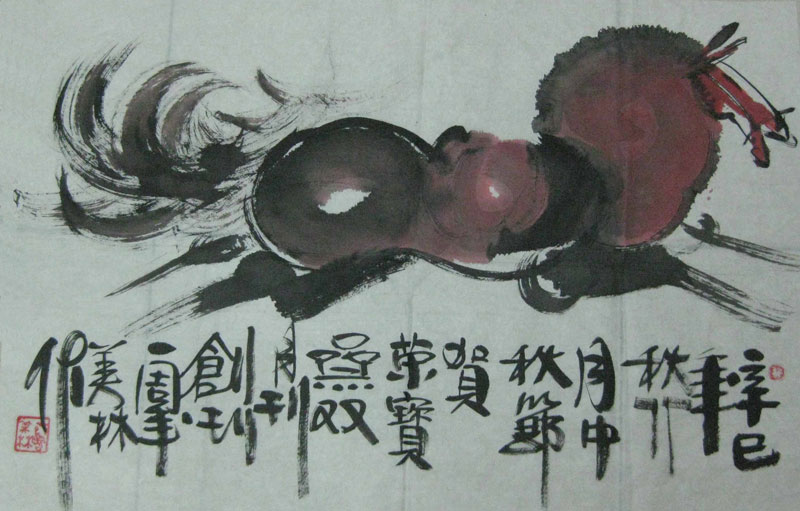 辛巳
年
秋八
月中
秋節
賀
榮寶
齋双
月刊
創刊
一周年
美林
作